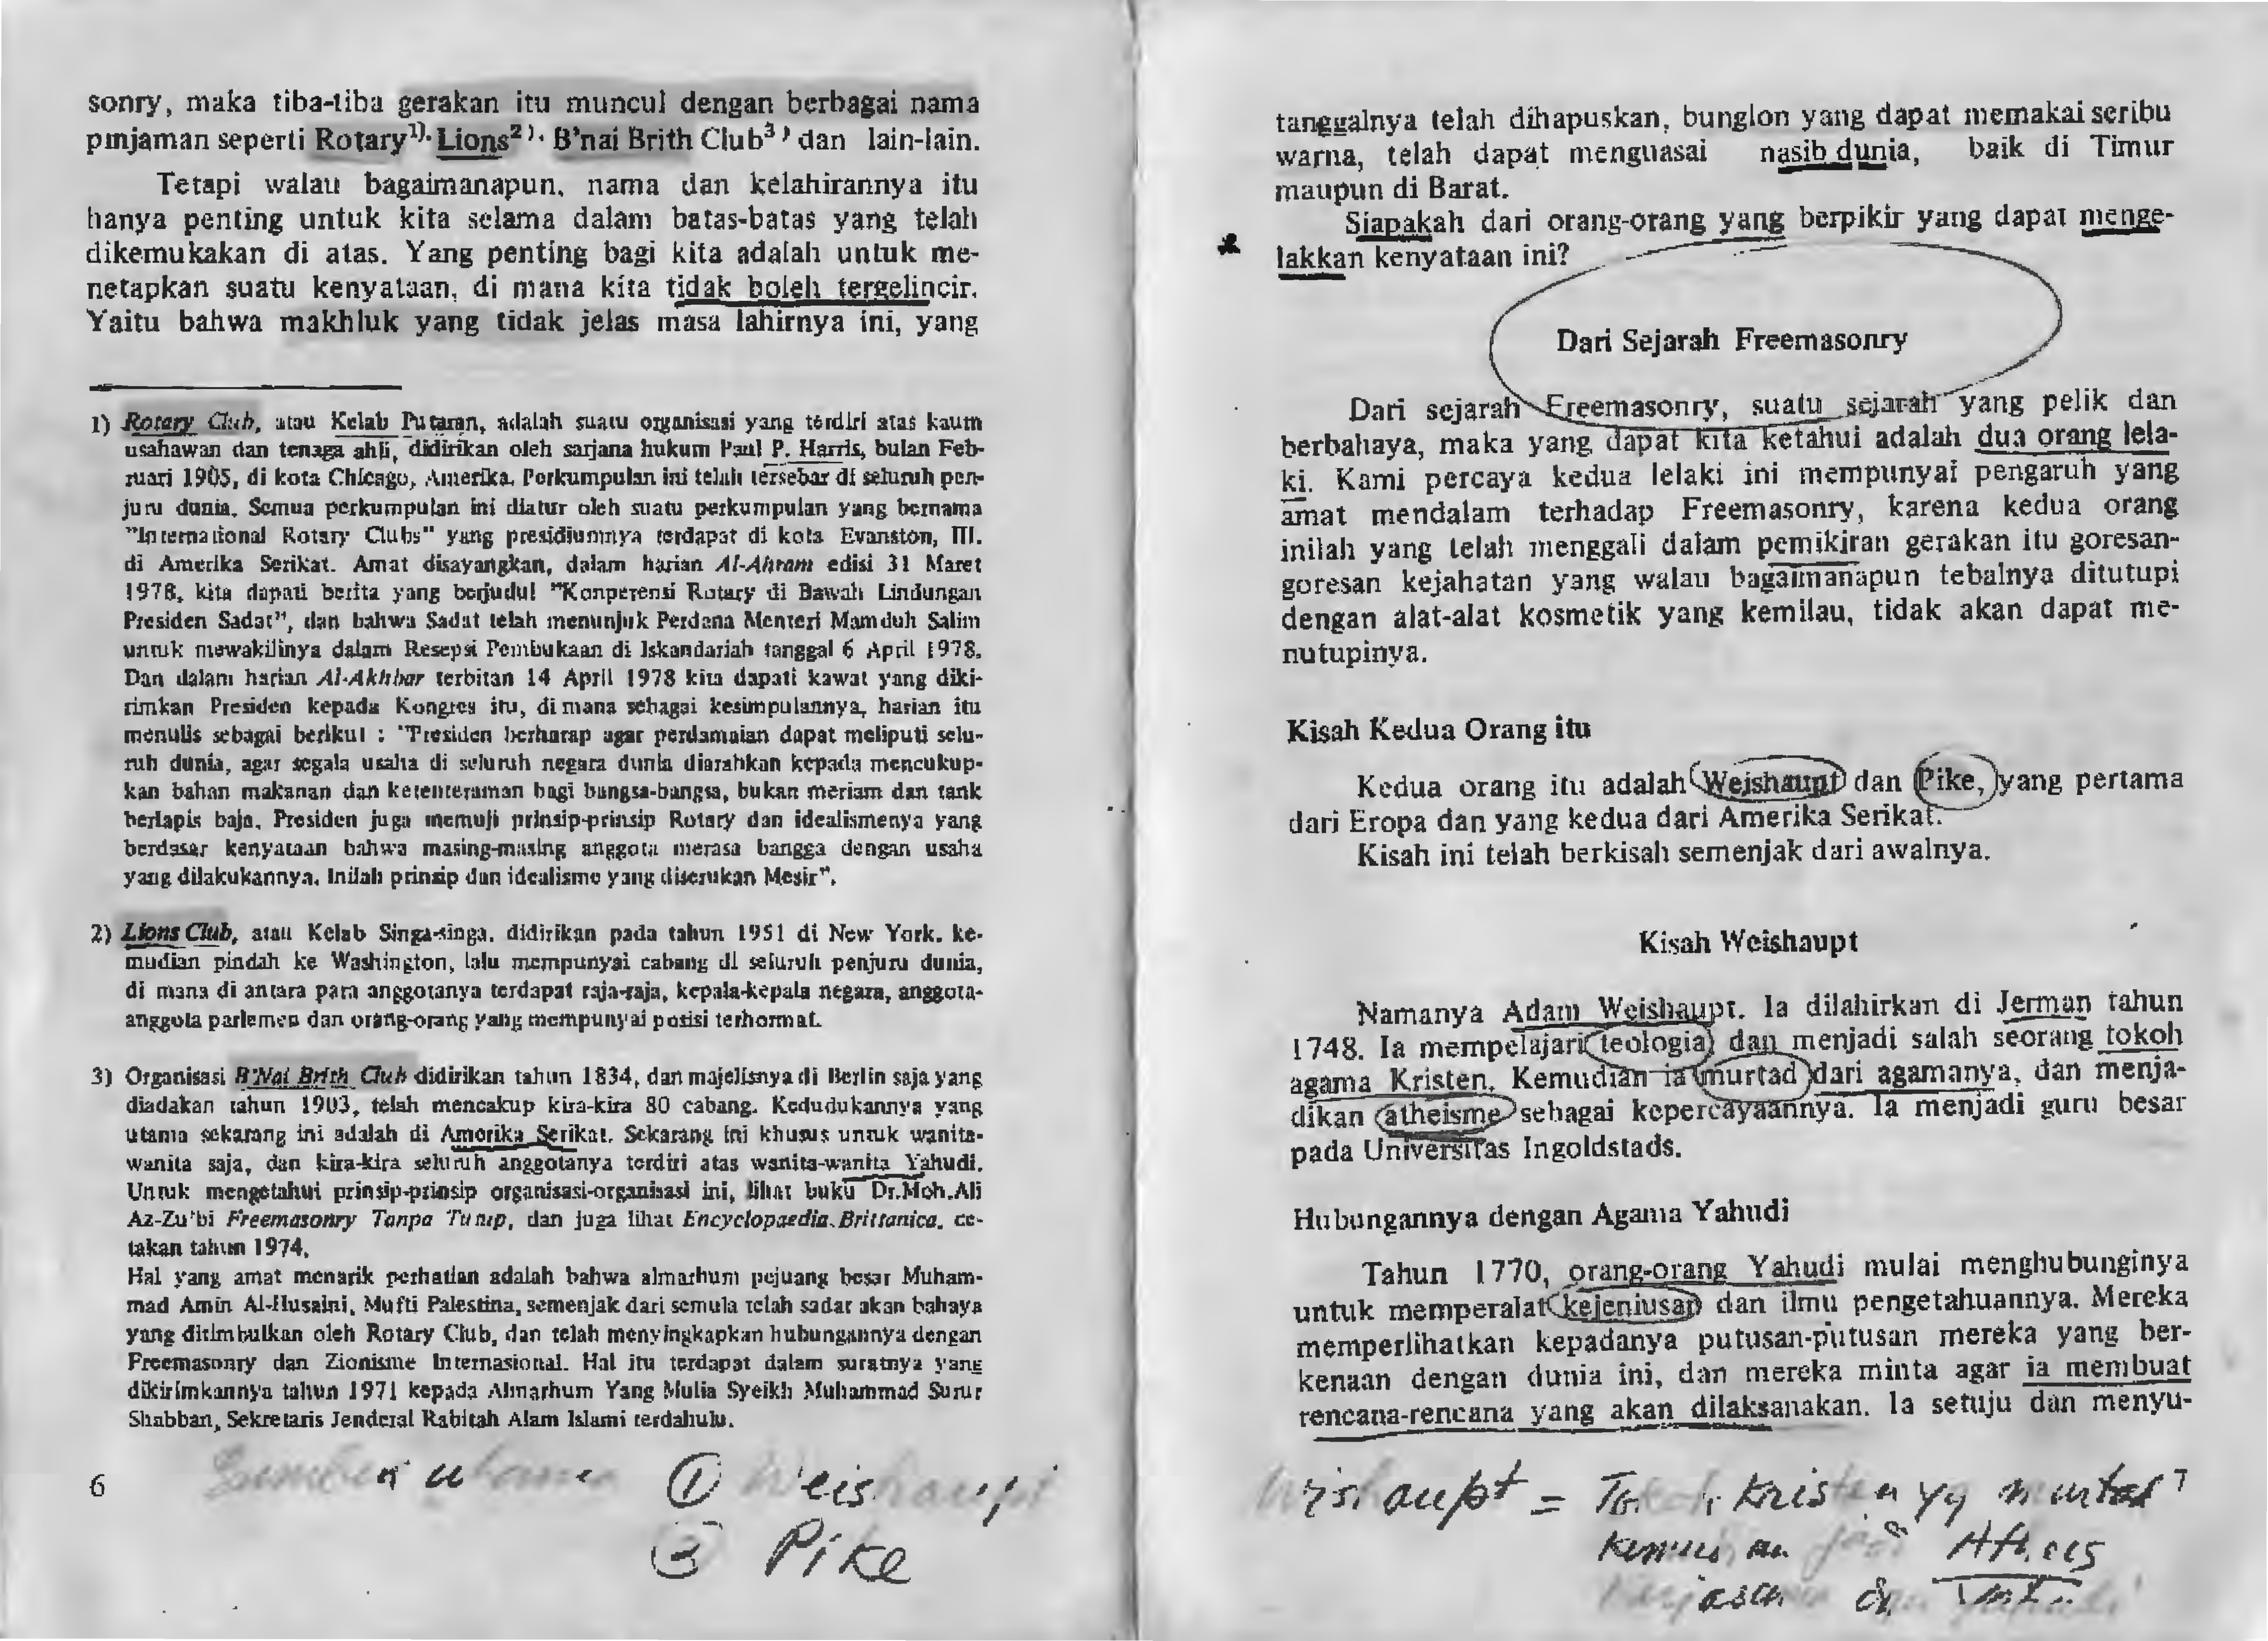 sonry, maka tiba-tiba gerakan itu muncul dengan berbagai nama
pinjaman seperti Rotary1). Lions2). B'nai Brith Club3) dan lain-lain.
Tetapi walau bagaimanapun, nama dan kelahirannya itu
hanya penting untuk kita selama dalam batas-batas yang telah
dikemukakan di atas. Yang penting bagi kita adalah untuk me-
netapkan suatu kenyataan, di mana kita tidak boleh tergelincir.
Yaitu bahwa makhluk yang tidak jelas masa lahirnya ini, yang
1) Rotary Club, atau Kelab Putaran, adalah suatu organisasi yang terdiri atas kaum
usahawan dan tenaga ahli, didirikan oleh sarjana hukum Paul P. Harris, bulan Feb-
ruari 1905, di kota Chicago, Amerika. Perkumpulan ini telah tersebar di seluruh pen-
juru dunia. Semua perkumpulan ini diatur oleh suatu perkumpulan yang bernama
"International Rotary Clubs" yang presidiumnya terdapat di kota Evanston, III.
di Amerika Serikat. Amat disayangkan, dalam harian Al-Ahram edisi 31 Maret
1978, kita dapati berita yang berjudul "Konperensi Rotary di Bawah Lindungan
Presiden Sadat", dan bahwa Sadat telah menunjuk Perdana Menteri Mamduh Salim
untuk mewakilinya dalam Resepsi Pembukaan di Iskandariah tanggal 6 April 1978.
Dan dalam harian Al-Akhbar terbitan 14 April 1978 kita dapati kawat yang diki-
rimkan Presiden kepada Kongres itu, di mana sebagai kesimpulannya, harian itu
menulis sebagai berikut : "Presiden berharap agar perdamaian dapat meliputi selu-
ruh dunia, agar segala usaha di seluruh negara dunia diarahkan kepada mencukup-
kan bahan makanan dan ketenteraman bagi bangsa-bangsa, bukan meriam dan tank
berlapis baja. Presiden juga memuji prinsip-prinsip Rotary dan idealismenya yang
berdasar kenyataan bahwa masing-masing anggota merasa bangga dengan usaha
yang dilakukannya. Inilah prinsip dan idealisme yang diserukan Mesir".
2) Lions Club, atau Kelab Singa-singa, didirikan pada tahun 1951 di New York. ke-
mudian pindah ke Washington, lalu mempunyai cabang di seluruh penjuru dunia,
di mana di antara para anggotanya terdapat raja-raja, kepala-kepala negara, anggota-
anggota parlemen dan orang-orang yang mempunyai posisi terhormat.
3) Organisasi B'Nai Brith Club didirikan tahun 1834, dan majelisnya di Berlin saja yang
diadakan tahun 1903, telah mencakup kira-kira 80 cabang. Kedudukannya yang
utama sekarang ini adalah di Amerika Serikat. Sekarang ini khusus untuk wanita-
wanita saja, dan kira-kira seluruh anggotanya terdiri atas wanita-wanita Yahudi.
Untuk mengetahui prinsip-prinsip organisasi-organisasi ini, lihat buku Dr.Moh.Ali
Az-Zu'bi Freemasonry Tanpa Tutup, dan juga lihat Encyclopaedia Brittanica, ce-
takan tahun 1974.
Hal yang amat menarik perhatian adalah bahwa almarhum pejuang besar Muham-
mad Amin Al-Husaini, Mufti Palestina, semenjak dari semula telah sadar akan bahaya
yang ditimbulkan oleh Rotary Club, dan telah menyingkapkan hubungannya dengan
Freemasonry dan Zionisme Internasional. Hal itu terdapat dalam suratnya yang
dikirimkannya tahun 1971 kepada Almarhum Yang Mulia Syeikh Muhammad Surur
Shabban, Sekretaris Jenderal Rabitah Alam Islami terdahulu.
6
① Weishaupt
② Pike
tanggalnya telah dihapuskan, bunglon yang dapat memakai seribu
warna, telah dapat menguasai nasib dunia, baik di Timur
maupun di Barat.
Siapakah dari orang-orang yang berpikir yang dapat menge-
lakkan kenyataan ini?
Dari Sejarah Freemasonry
Dari sejarah Freemasonry, suatu sejarah yang pelik dan
berbahaya, maka yang dapat kita ketahui adalah dua orang lela-
ki. Kami percaya kedua lelaki ini mempunyai pengaruh yang
amat mendalam terhadap Freemasonry, karena kedua orang
inilah yang telah menggali dalam pemikiran gerakan itu goresan-
goresan kejahatan yang walau bagaimanapun tebalnya ditutupi
dengan alat-alat kosmetik yang kemilau, tidak akan dapat me-
nutupinya.
Kisah Kedua Orang itu
Kedua orang itu adalah Weishaupt dan Pike, yang pertama
dari Eropa dan yang kedua dari Amerika Serikat.
Kisah ini telah berkisah semenjak dari awalnya.
Kisah Weishaupt
Namanya Adam Weishaupt. Ia dilahirkan di Jerman tahun
1748. Ia mempelajari teologia dan menjadi salah seorang tokoh
agama Kristen. Kemudian ia murtad dari agamanya, dan menja-
dikan atheisme sebagai kepercayaannya. Ia menjadi guru besar
pada Universitas Ingoldstads.
Hubungannya dengan Agama Yahudi
Tahun 1770, orang-orang Yahudi mulai menghubunginya
untuk memperalat kejeniusan dan ilmu pengetahuannya. Mereka
memperlihatkan kepadanya putusan-putusan mereka yang ber-
kenaan dengan dunia ini, dan mereka minta agar ia membuat
rencana-rencana yang akan dilaksanakan. Ia setuju dan menyu-
Weishaupt = Tokoh Kristen yg murtad